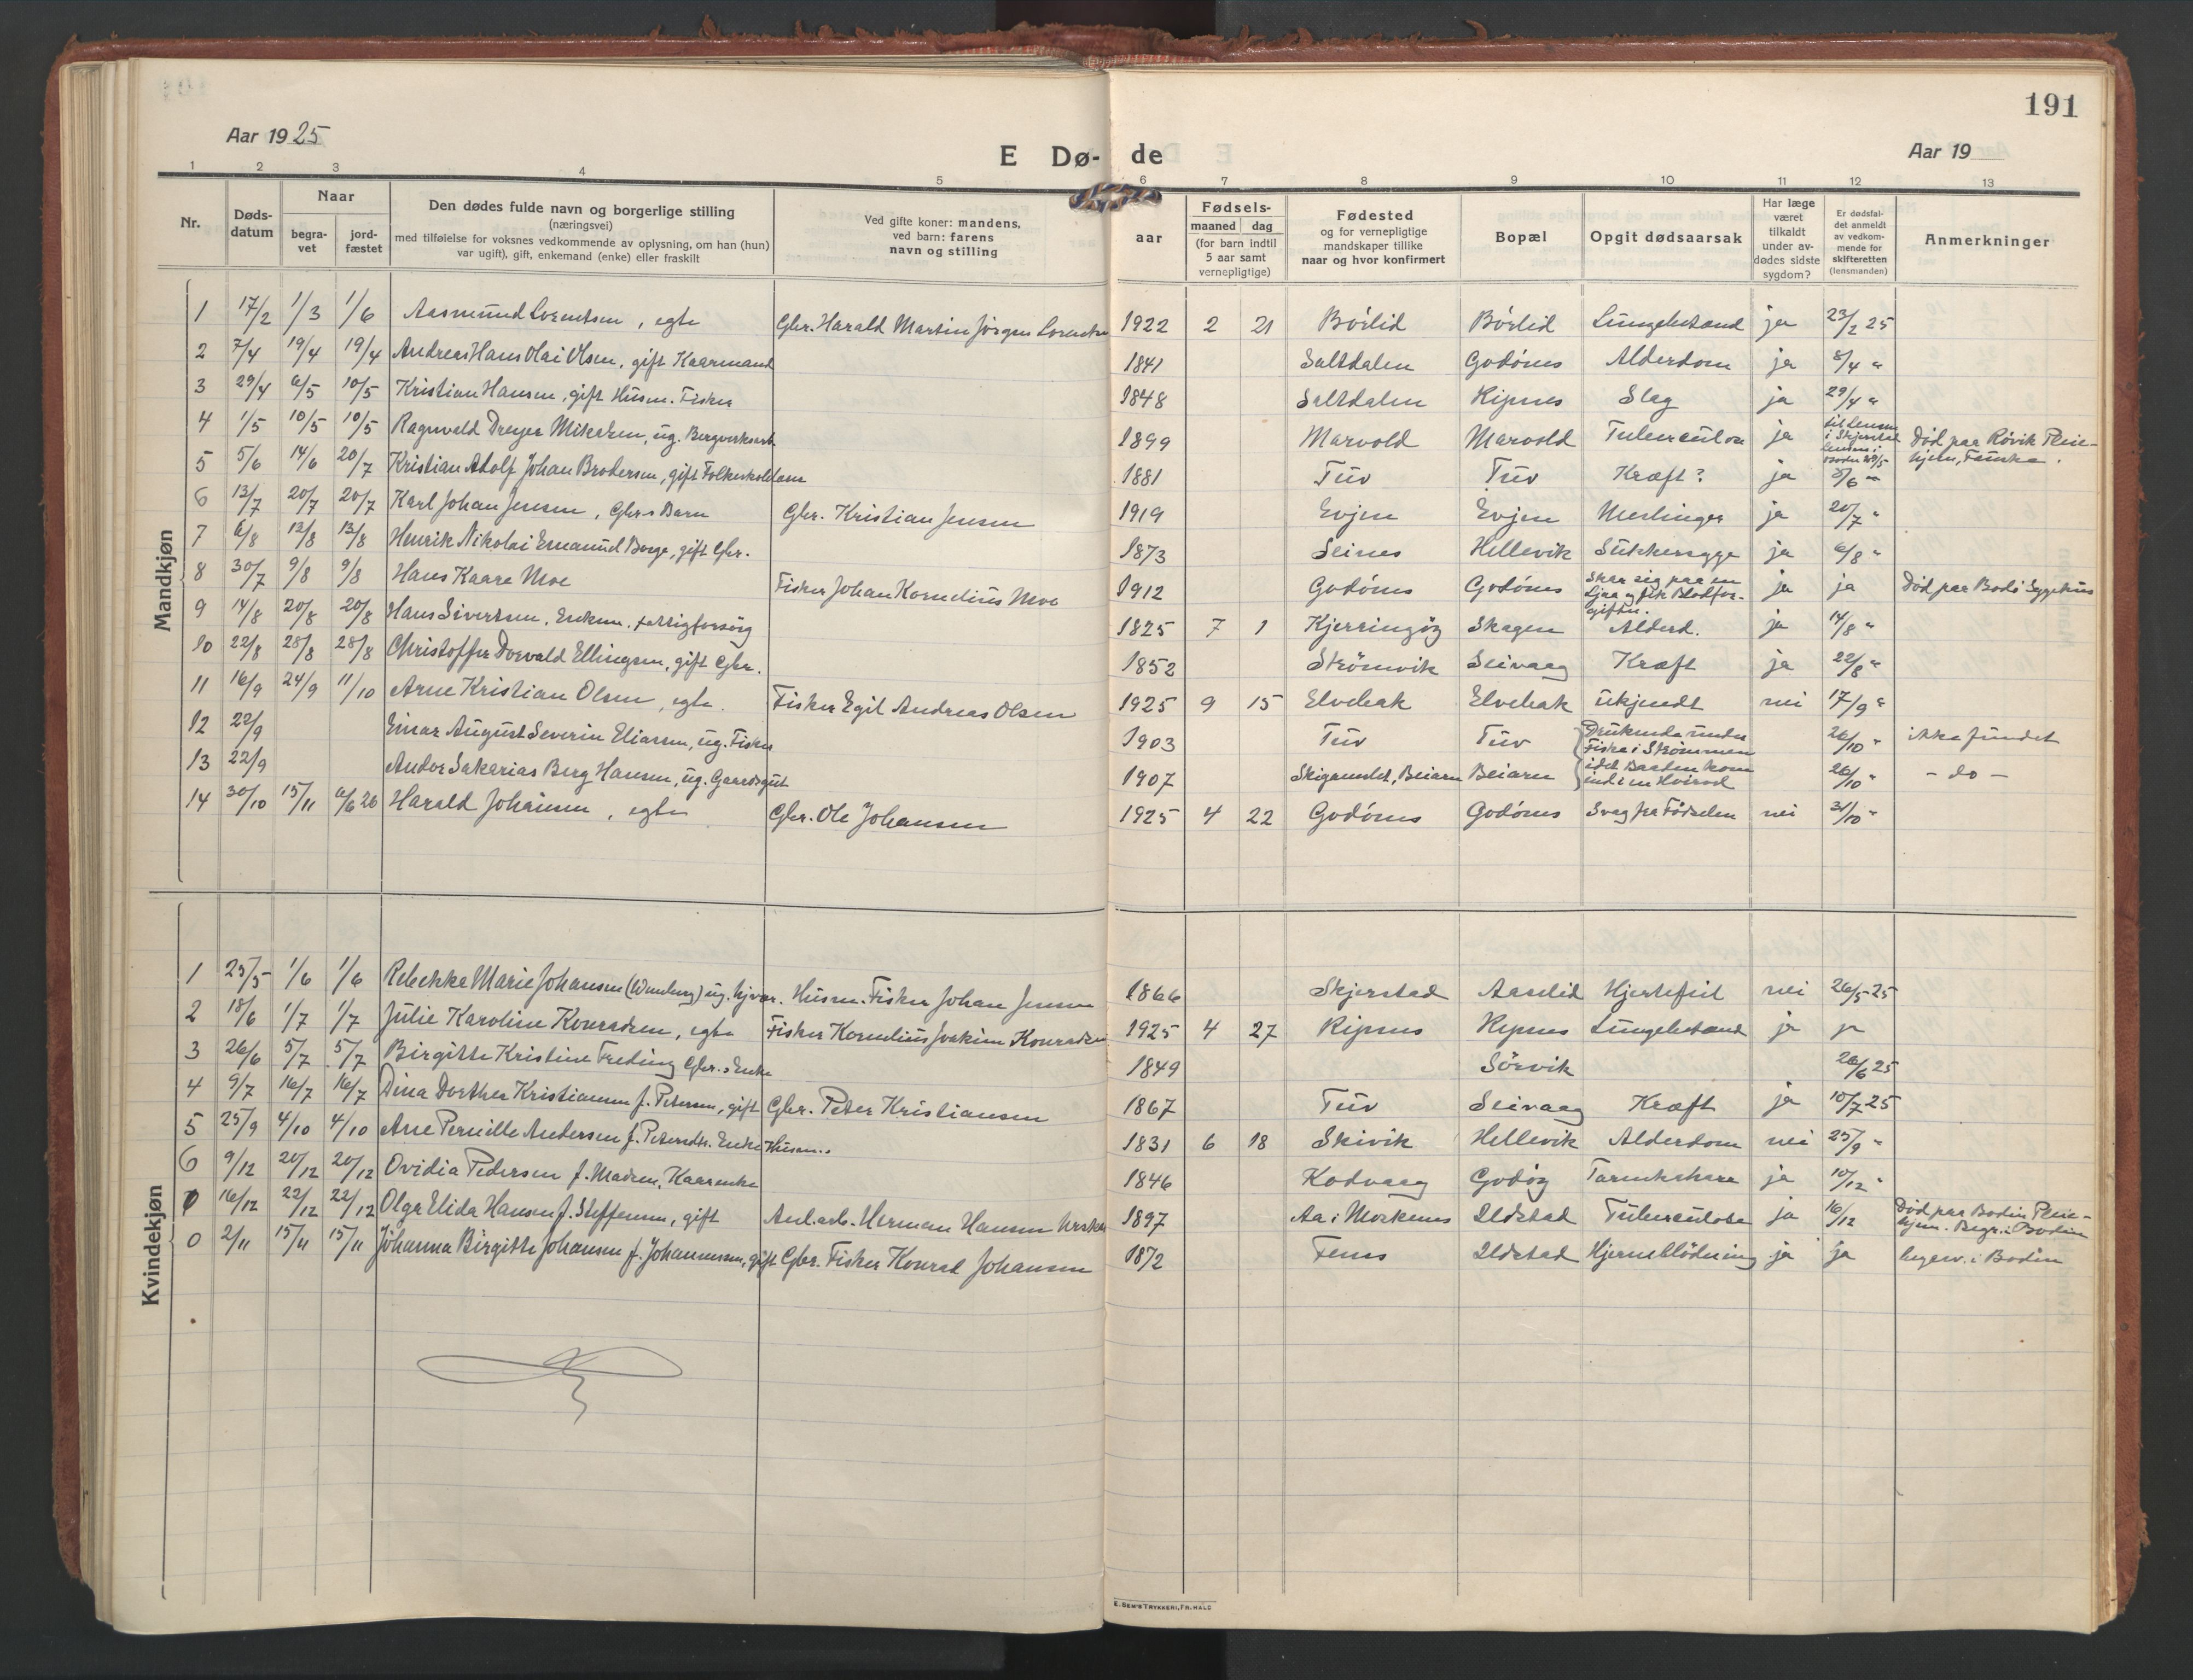 191
Aar 1925
E Dø- de
Aar 19
1 2 3 4 5 6 7 8 9 10 11 12 13
Nr.
Døds-
datum
Naar
begra-
vet
jord-
fæstet
Den dødes fulde navn og borgerlige stilling
(næringsvei)
med tilføielse for voksnes vedkommende av oplysning, om han (hun)
var ugift), gift, enkemand (enke) eller fraskilt
Ved gifte koner: mandens,
ved barn: farens
navn og stilling
aar
Fødsels-
maaned dag
(for barn indtil
5 aar samt
vernepligtige)
Fødested
og for vernepligtige
mandskaper tillike
naar og hvor konfirmert
Bopæl
Opgit dødsaarsak
Har læge
været
tilkaldt
under av-
dødes sidste
sygdom?
Er dødsfal-
det anmeldt
av vedkom-
mende for
skifteretten
(lensmanden)
Anmerkninger
Mandkjøn
1 17/2 1/3 1/6 Aasmund Lorentsen, egte Gbr. Harald Martin Jørgen Lorentsen 1922 2 21 Børlid Børlid Lungebetænd ja 23/2 25
2 7/4 19/4 19/4 Andreas Hans Olai Olsen, gift Kaarmand 1841 Saltdalen Godønes Alderdom ja 8/4 "
3 29/4 6/5 10/5 Kristian Hansen, gift Husm. Fisker 1848 Saltdalen Ripnes Slag ja 29/4 "
4 1/5 10/5 10/5 Ragnvald Dreyer Mikalsen, ug. Bergverksarb. 1899 Marvold Marvold Tuberculose ja til Lensm. i Skjerstad Død paa Røvik Pleie-
hjem, Fauske.
5 5/6 14/6 20/7 Kristian Adolf Johan Brodersen, gift 1881 Tuv Tuv Kræft? ja 5/6 "
6 13/7 20/7 20/7 Karl Johan Jensen, Gbr.s Barn Gbr. Kristian Jensen 1919 Evjen Evjen ja 20/7 "
7 6/8 13/8 13/8 Henrik Nikolai Emanuel Borge, gift Gbr. 1873 Seines Hellevik Sukkersyge ja 6/8 "
8 30/7 9/8 9/8 Hans Kaare Moe Fisker Johan Kornelius Moe 1912 Godønes Godønes Skar sig paa en
Ljaa og fik Blodfor-
giftn. ja ja Død paa Bodø Sygehus
9 14/8 20/8 20/8 Hans Sivertsen, Enkem. fattigforsørg 1825 7 1 Kjerringøy Skagen Alderd. ja 14/8 "
10 22/8 28/8 28/8 Christoffer Dorvald Ellingsen, gift Gbr. 1852 Strømvik Seivaag Kræft ja 22/8 "
11 16/9 24/9 11/10 Arne Kristian Olsen, egte. Fisker Egil Andreas Olsen 1925 9 15 Elvebak Elvebak ukjendt nei 17/9 "
12 22/9 Einar August Severin Eliassen, ug. Fisker 1903 Tuv Tuv Druknede under
Fiske i Strømmen 26/10 " ikke fundet
13 22/9 Andor Sakarias Berg Hansen, ug. Gaardsgut 1907 Beiarn Beiarn idet Baaten kom
ind i en Hvirvel 26/10 " - do -
14 30/10 15/11 6/6 26 Harald Johansen, egte Gbr. Ole Johansen 1925 4 22 Godønes Godønes Svag fra Fødselen nei 31/10 "
Kvindekjøn
1 25/5 1/6 1/6 Rebekke Marie Johansen ug. Husm. Fisker Johan Jensen 1866 Skjerstad Aaselid Hjertefeil nei 26/5 25
2 18/6 1/7 1/7 Julie Karoline Konradsen, egte Fisker Kornelius Joakim Konradsen 1925 4 27 Ripnes Ripnes Lungebetænd ja ja
3 26/6 5/7 5/7 Birgitte Kristine Gbr.s Enke 1849 Sørvik 26/6 25
4 9/7 16/7 16/7 Dina Dorthea Kristiansen f. Petersen, gift Gbr. Peter Kristiansen 1867 Tuv Seivaag Kræft ja 10/7 25
5 25/9 4/10 4/10 Ane Pernille Andersen f. Petersdt. Enke Husm. 1831 6 18 Skivik Hellevik Alderdom nei 25/9 "
6 9/12 20/12 20/12 Ovidia Pedersen f. Madsen, Kaarenke 1846 Kodvaag Godøy ja 10/12 "
0 16/12 22/12 22/12 Olga Elida Hansen f. Steffensen, gift Anl.arb. Herman Hansen 1897 Aa i Moskenes Ildstad Tuberculose ja 16/12 Død paa Bodin Pleie-
hjem. Begr. i Bodin
0 2/11 15/11 15/11 Johanna Birgitte Johansen f. Johannessen, gift Gbr. Fisker Konrad Johansen 1872 Fenes Ildstad Hjerneblødning ja ja begrv. i Bodin
E. SEM'S TRYKKERI, FR.HALD